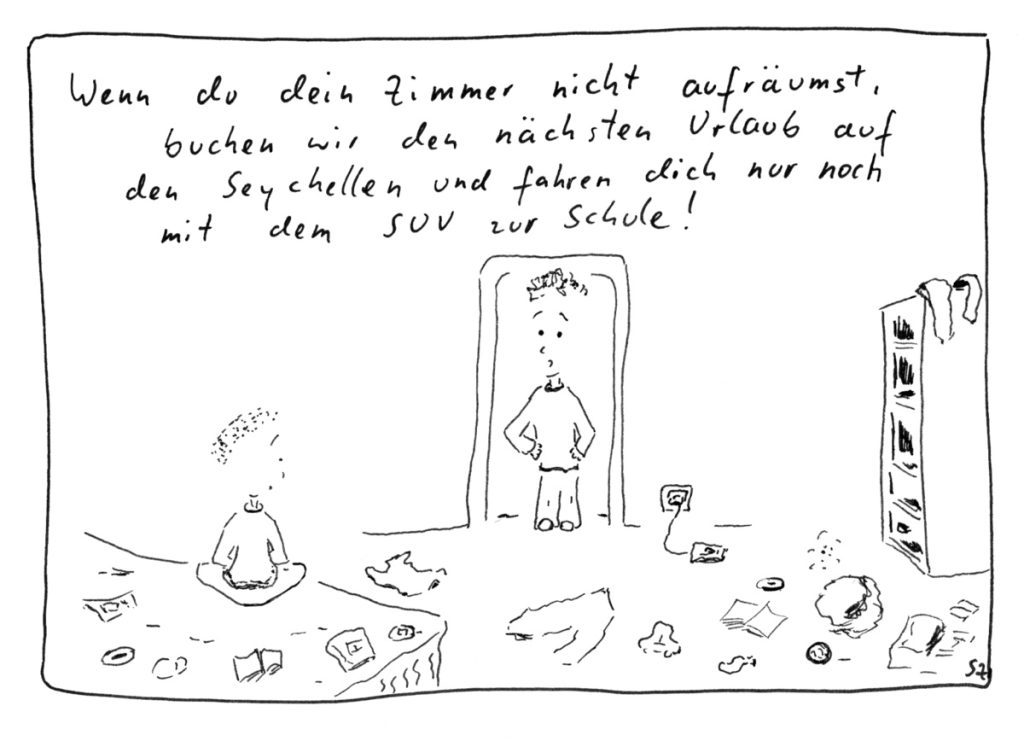 Wenn du dein Zimmer nicht aufräumst,
buchen wir den nächsten Urlaub auf
den Seychellen und fahren dich nur noch
mit dem SUV zur Schule!
SZ